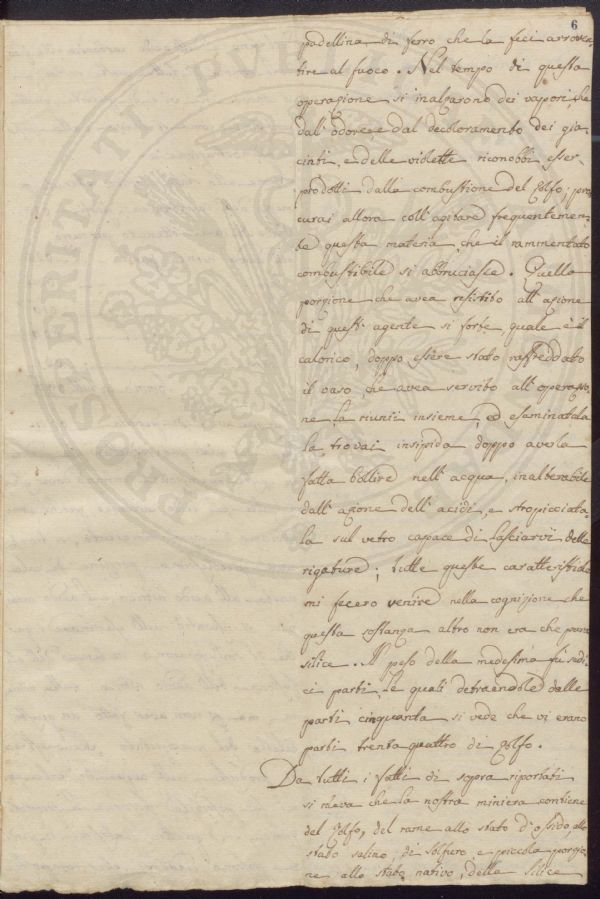 6
padellina di ferro che la feci arroven-
tire al fuoco. Nel tempo di questa
operazione si inalzarono dei vapori, che
dall'odore e dal decoloramento dei gia-
cinti, e delle violette riconobbi esser
prodotti dalla combustione del Zolfo; pro
curai allora coll'agitare frequentemen-
te questa materia che il rammentato
combustibile si abbruciasce. Quella
porzione che avea resistito all'azione
di questi agente si forte, quale è il
calorico, doppo essere stato raffreddato
il vaso, che avea servito all'operazio
ne la riunii insieme, ed esaminatala
la trovai insipida doppo averla
fatta bollire nell'acqua, inalterabile
dall'azione dell'acidi, e stropicciata-
la sul vetro capace di lasciarvi delle
rigature; tutte queste caratteristiche
mi fecero venire nella cognizione che
questa sostanza altro non era che pura
silice. Il peso della medesima fù sedi
ci parti, le quali detraendole dalle
parti cinquanta si vede che vi erano
parti trenta quattro di Zolfo.
Da tutti i fatti di sopra riportati
si rileva che la nostra miniera contiene
del Zolfo, del rame allo stato d'ossido, allo
stato salino, di solfuro e piccola porzio
ne allo stato nativo, della silice
PROSPERITATI PUBLICAE